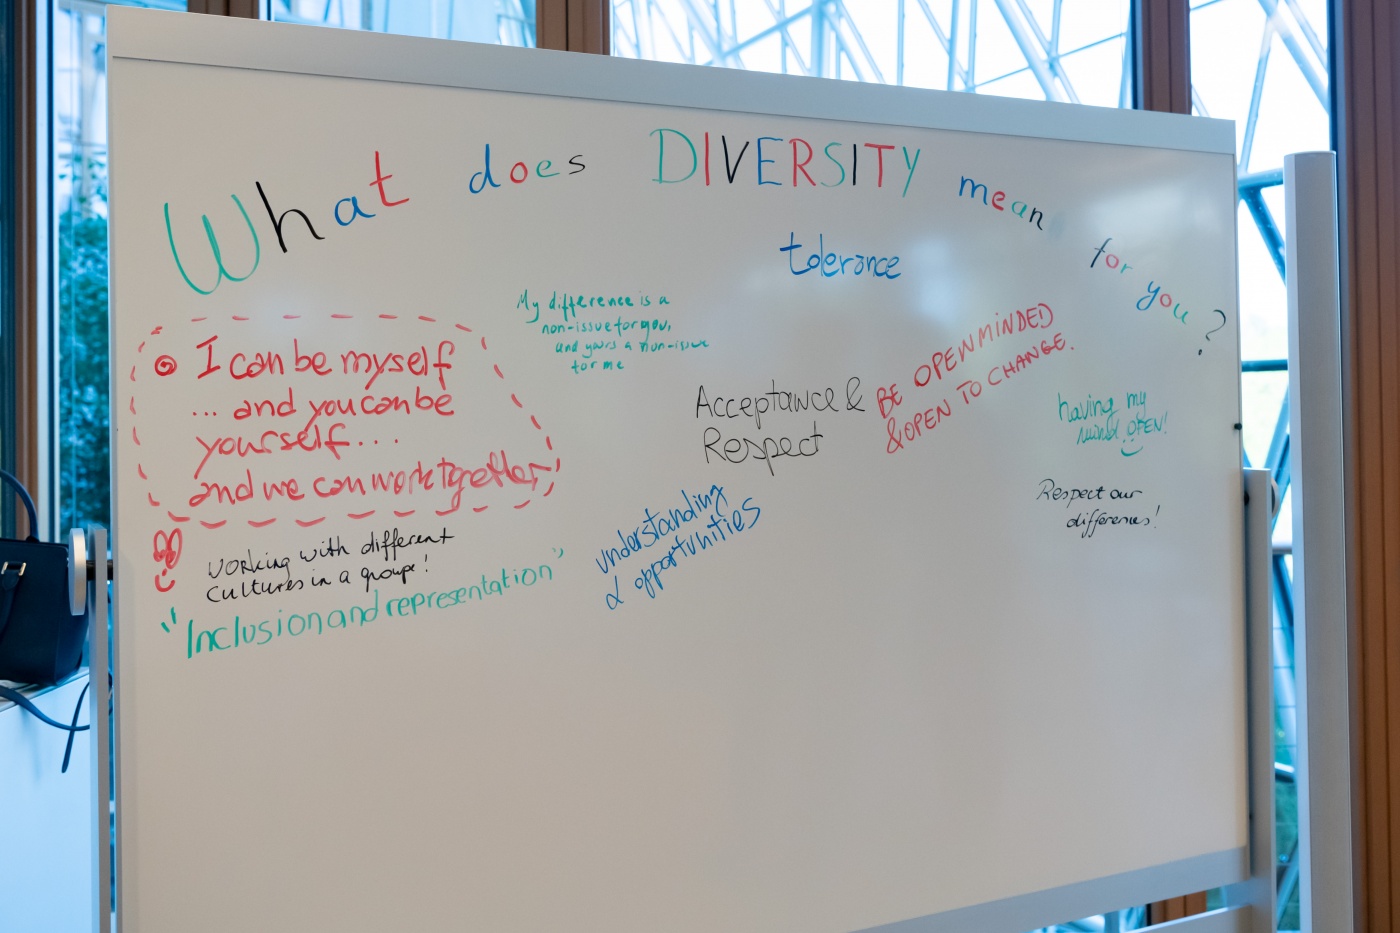 What does DIVERSITY mean for you?
tolerance
My difference is a
non-issue for you,
and yours a non-issue
for me
I can be myself
... and you can be
yourself...
and we can work together
Acceptance &
Respect
BE OPENMINDED
& OPEN TO CHANGE.
having my
mind OPEN!
Respect our
differences!
understanding
& opportunities
Working with different
Cultures in a groupe!
"Inclusion and representation"